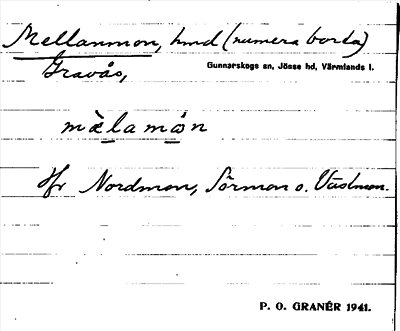 Mellanmon, hmd (numera borta)
Gravås, Gunnarskogs sn, Jösse hd, Värmlands l.
mὰlamón
Jfr Nordmon, Sörmon o. Västmon.
P. O. GRANÉR 1941.